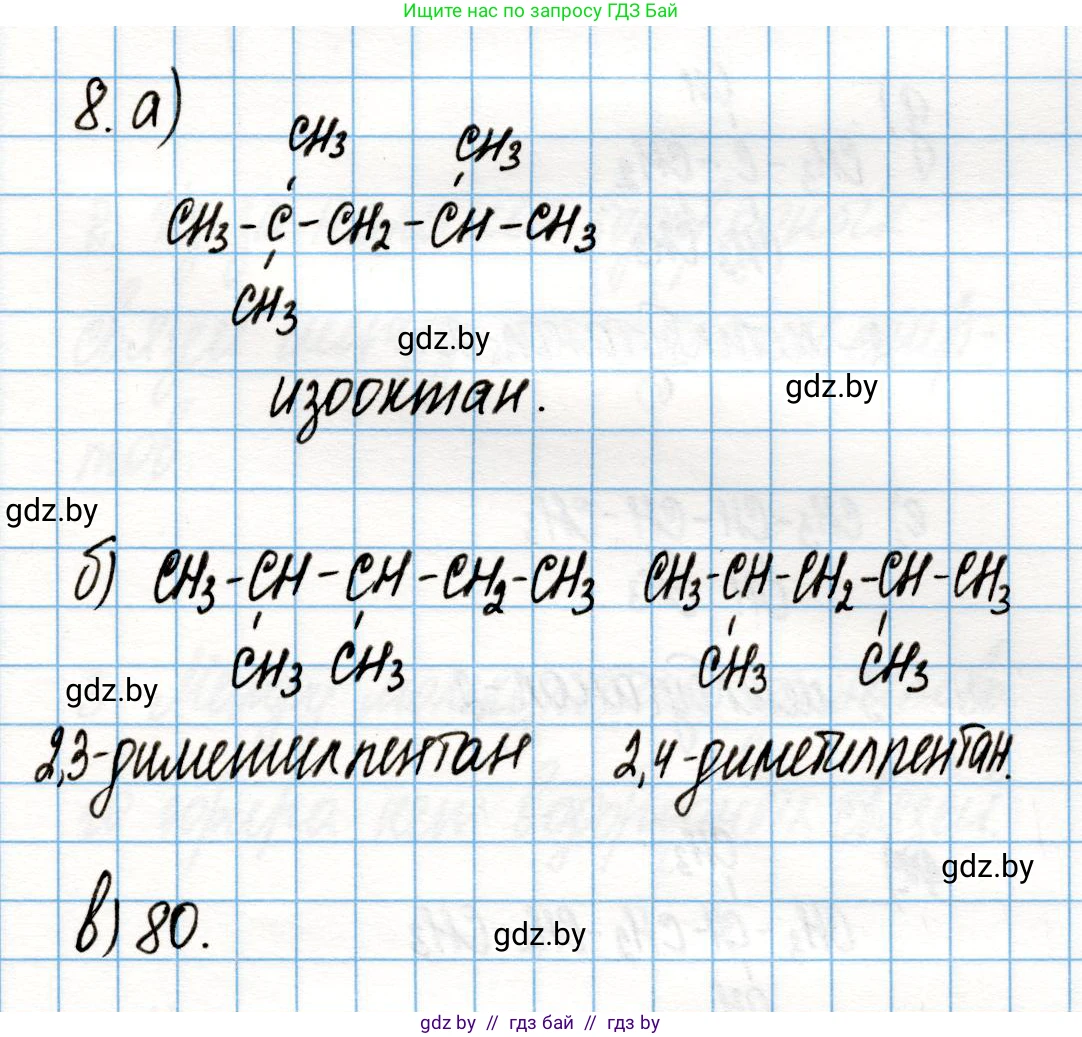 Ищите нас по запросу ГДЗ Бай
8. а)
CH3 CH3
CH3-C-CH2-CH-CH3
CH3
gdz.by
изооктан.
gdz.by
gdz.by
б) CH3-CH-CH-CH2-CH3 CH3-CH-CH2-CH-CH3
CH3 CH3 CH3 CH3
gdz.by
2,3-диметилпентан 2,4-диметилпентан.
gdz.by
в) 80.
gdz.by
gdz by // гдз бай // гдз by